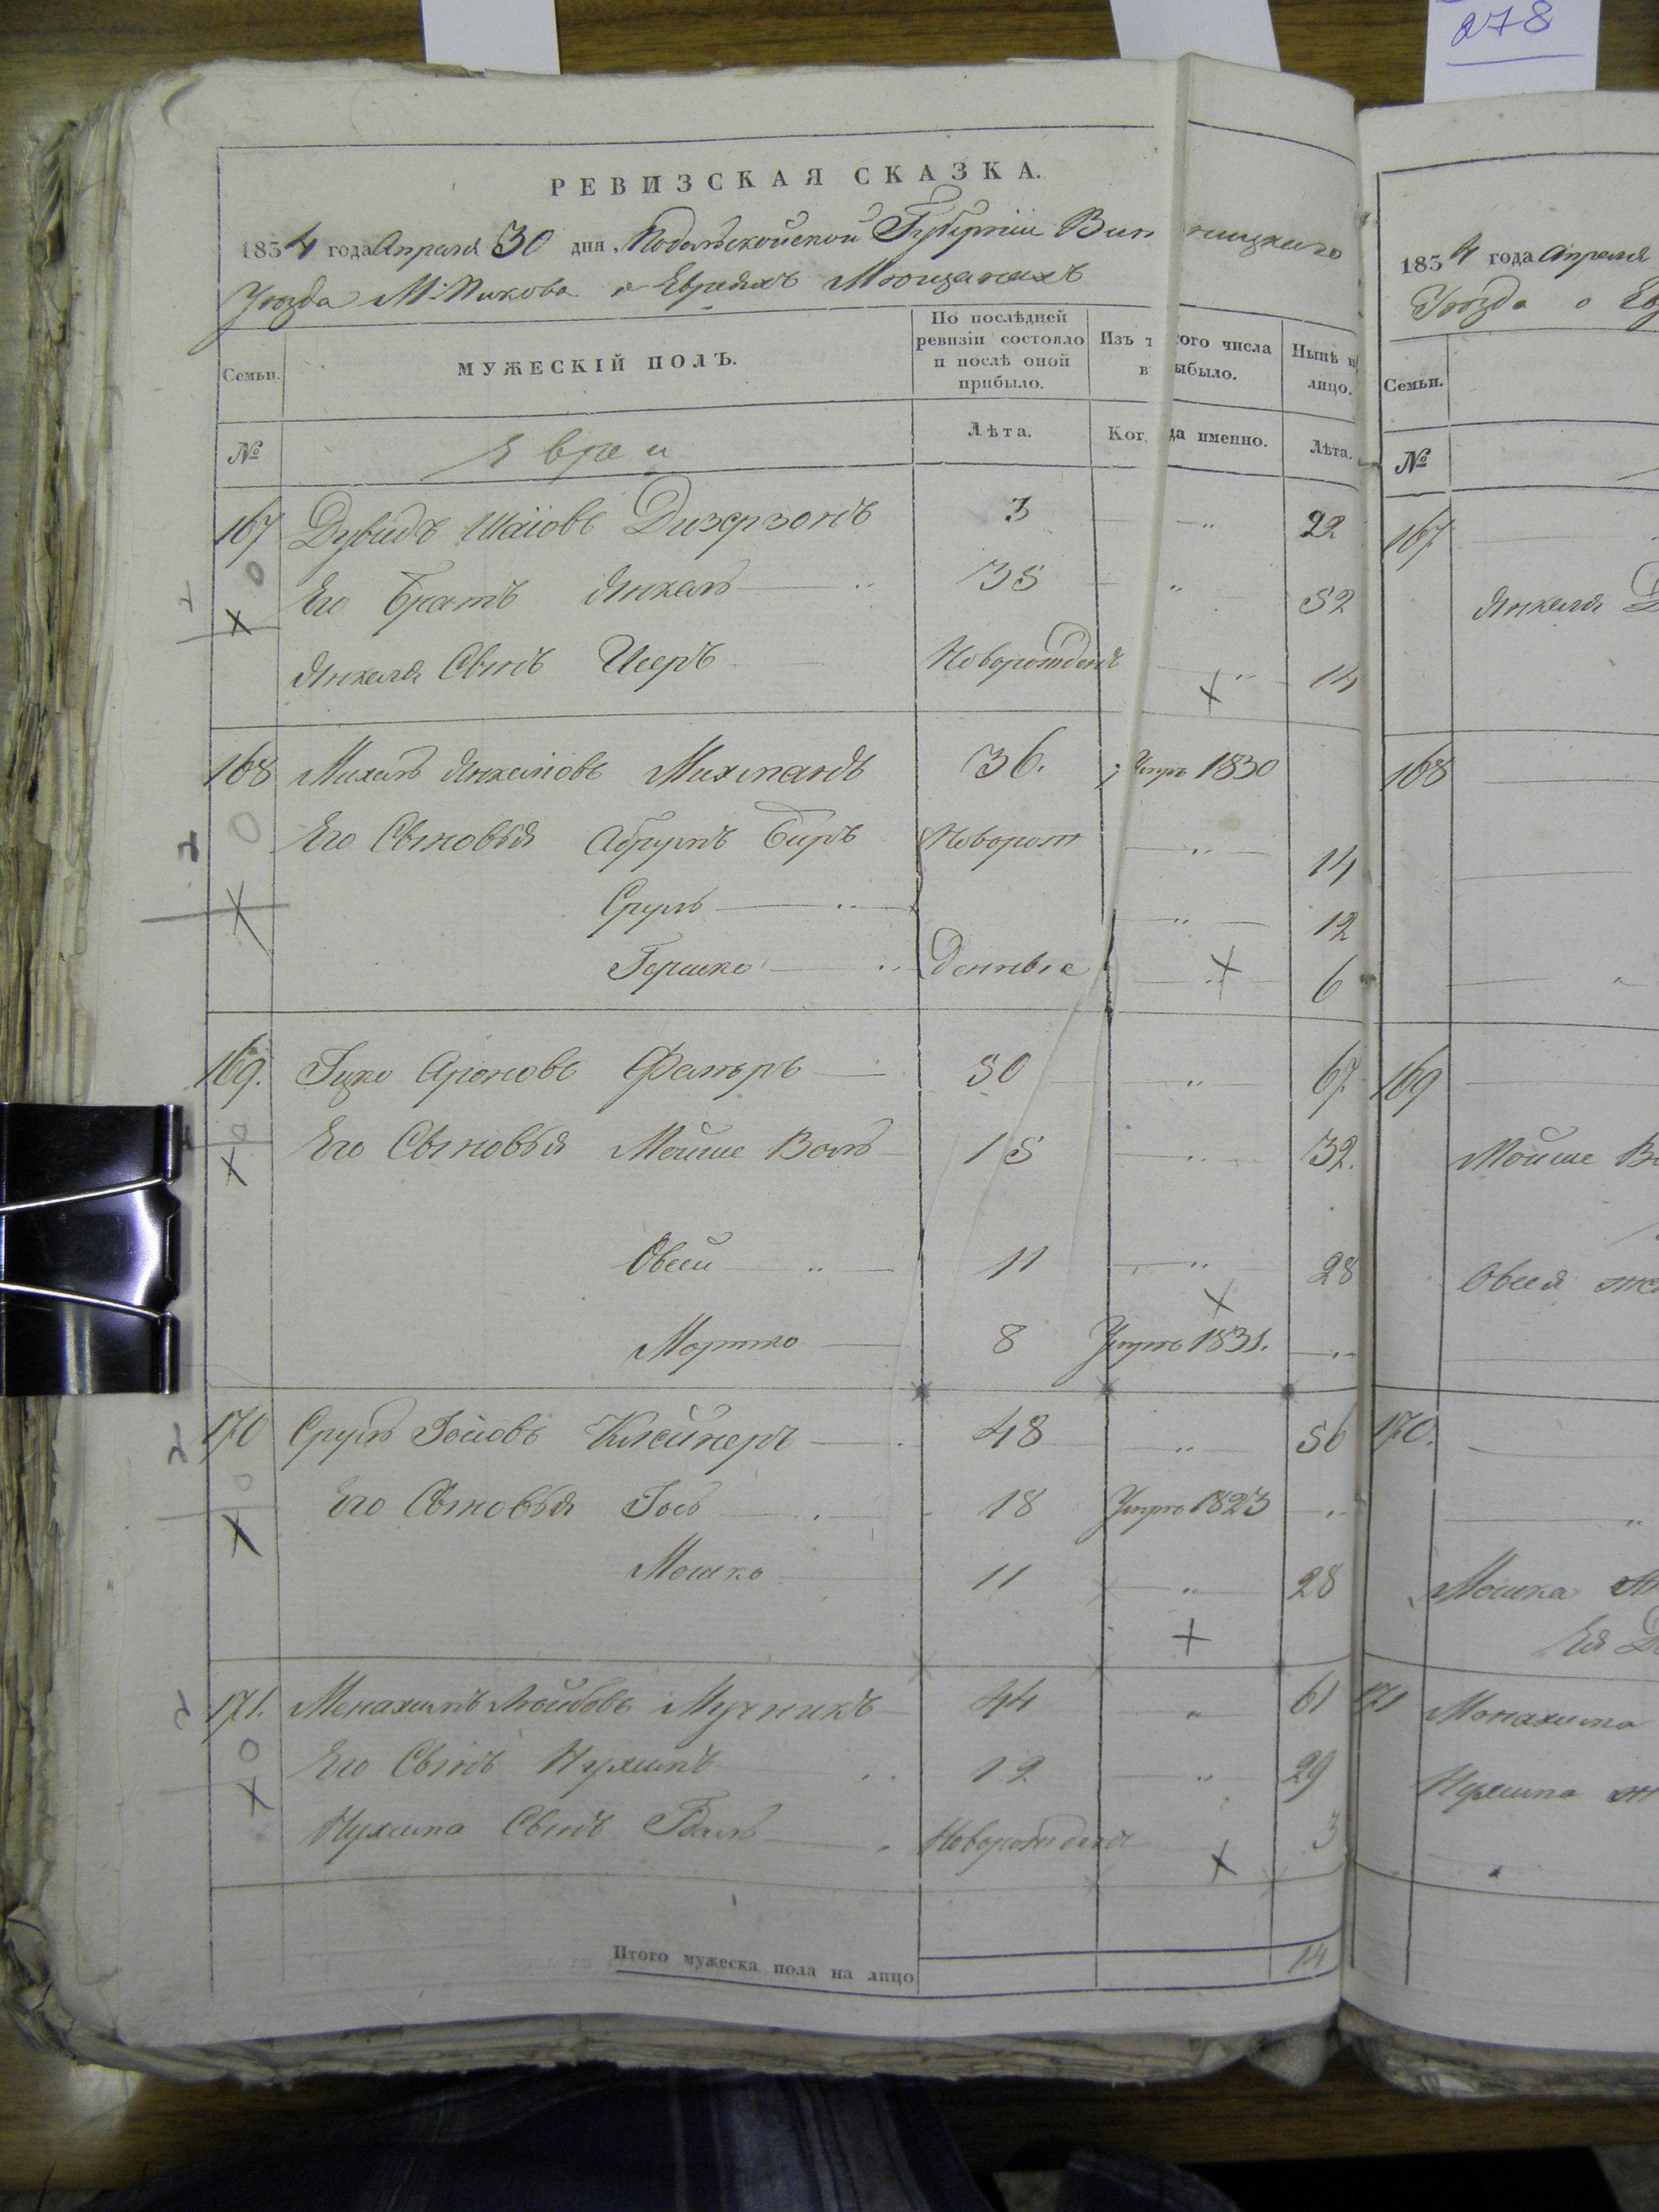 278
РЕВИЗСКАЯ СКАЗКА.
1834 года Апреля 30 дня, Подольской Губернiи Винницкаго
Уѣзда М: Пикова о Евреяхъ Мѣщанахъ
Семьи.
МУЖЕСКІЙ ПОЛЪ.
По послѣдней ревизіи состояло и послѣ оной прибыло.
Изъ того числа выбыло.
Нынѣ на лицо.
№
Евреи
Лѣта.
Когда именно.
Лѣта.
167 Дувидъ Шаіовъ 3 — „ 22
Его Братъ Янкель — „ 35 — „ 52
Янкеля Сынъ Исеръ Новорожденъ — „ 14
168 Михель Янкеліовъ 36. Умръ 1830
Его Сыновья Абрумъ Беръ Новорож — „ — 14
Сруль — „ — — „ — 12
Гершко — „ денные — „ — 6
169. Гицко Ароновъ 50 — „ — 67
Его Сыновья Мойше Волъ 15 — „ — 32.
Овсей — „ — 11 — „ — 28
Мортко — 8 Умръ 1831. — „
170 Сруль Госіовъ Клейнеръ — 48 „ 56
Его Сыновья Гось — 18 Умръ 1823 — „
Мошко 11 — „ — 28
171. Менахимъ Лейбовъ Мучникъ 44 — „ — 61
Его Сынъ Нухимъ 12 — „ — 29
Нухима Сынъ — Новорожденъ 3
Итого мужеска пола на лицо 14
1834 года Апреля
Уѣзда о
Семьи.
№
167
Янкеля
168
169
Мойше
Овсея
170.
Мошка
Ея
171 Менахима
Нухима